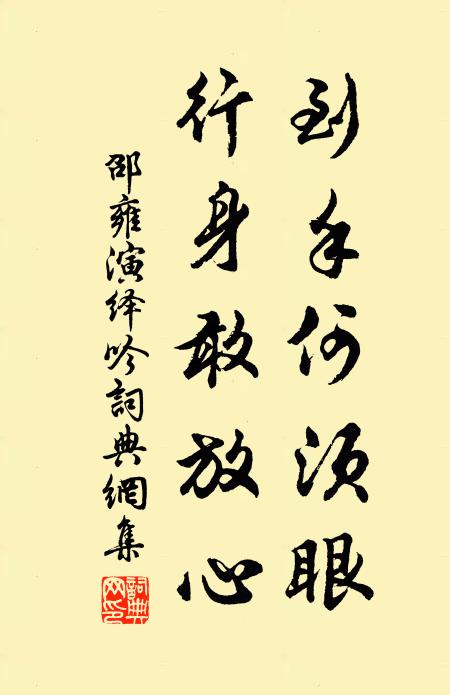 到手何须眼
行身敢放心
邵雍演绎吟詞典網集
詞典網印